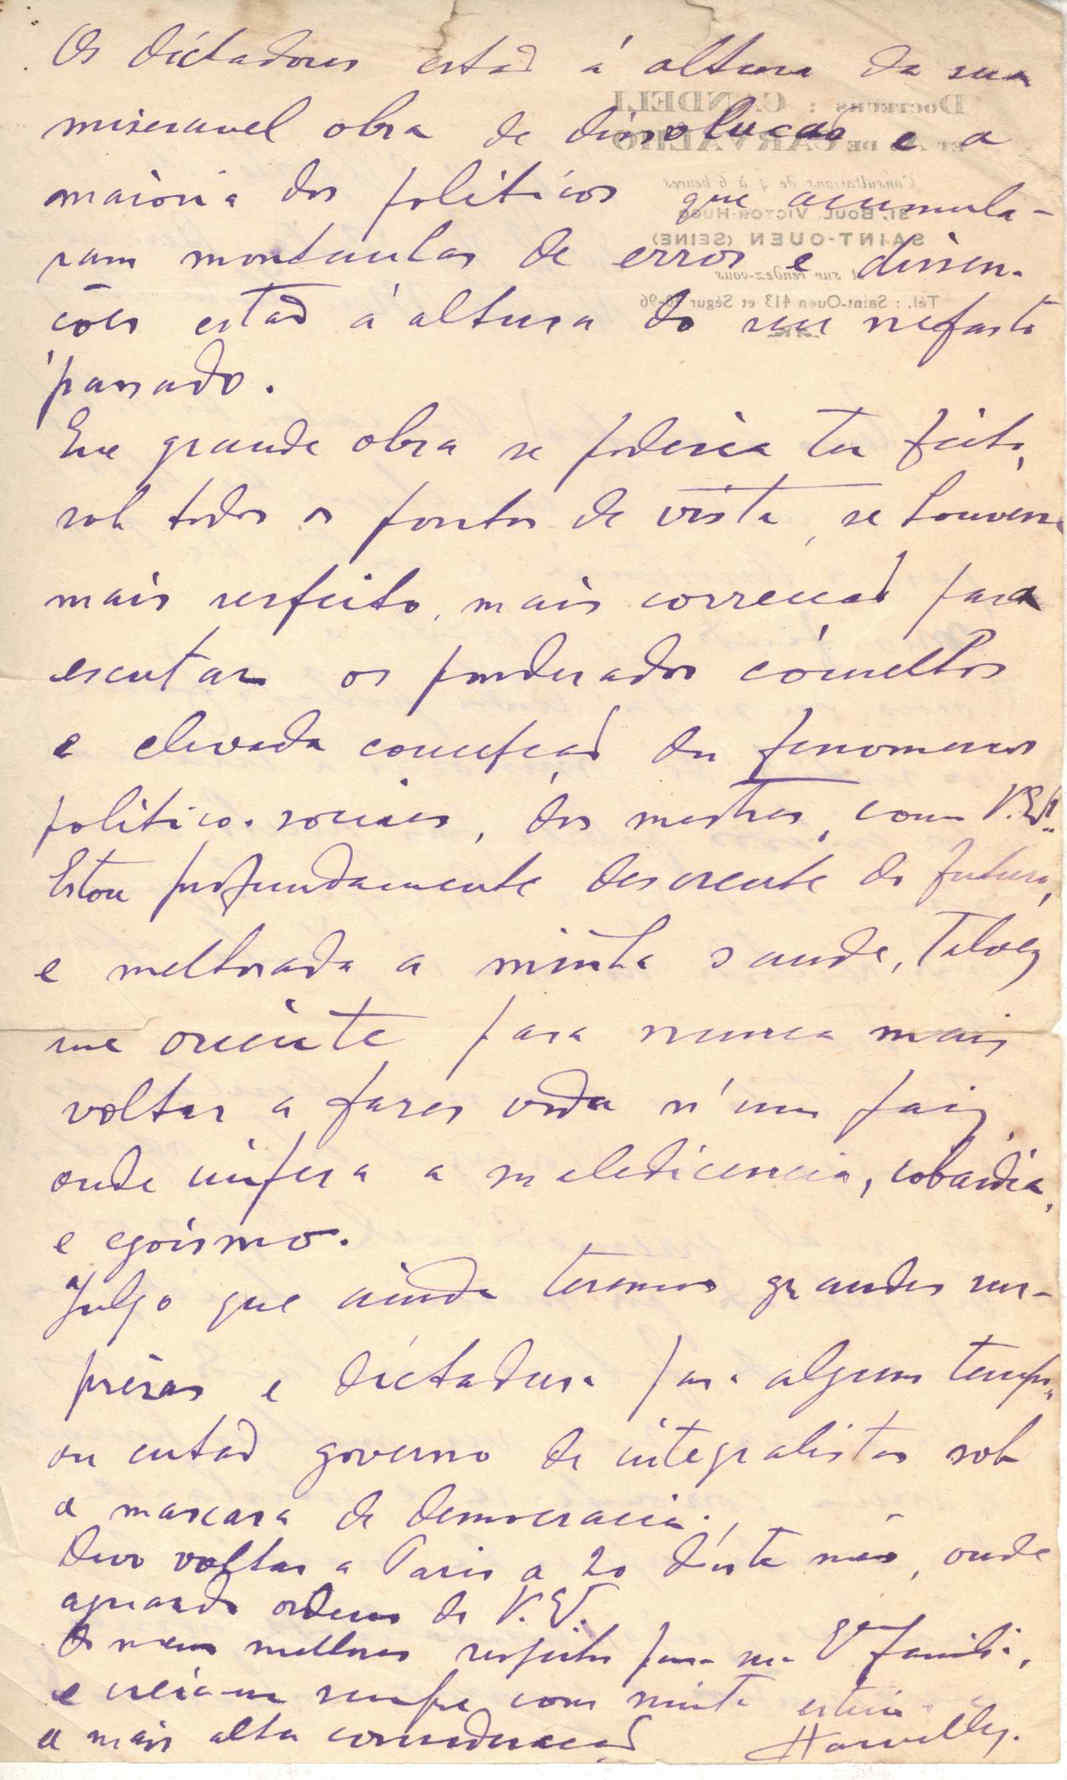 Os dictadores estão á altura da sua
miseravel obra de dissolucão e a
maioria dos politicos que acumula-
ram montanhas de erros e dissen-
cões estão á altura do seu nefasto
passado.
Que grande obra se poderia ter feito,
sob todos os pontos de vista, se houvesse
mais respeito, mais correcção para
escutar os ponderados conselhos
e elevada concepção dos fenomenos
politico-sociais, dos mestres, como V. Exª.
Estou profundamente descrente do futuro,
e melhorada a minha saude, talvez
me oriente para nunca mais
voltar a fazer vida n'um paiz
onde impera a maledicencia, cobardia,
e egoismo.
Julgo que ainda teremos grandes sur-
prezas e dictadura para algum tempo,
ou então governo de integralistas sob
a mascara de democracia.
Devo voltar a Paris a 20 d'este mês, onde
aguardo ordens de V. Ex.
Os meus melhores respeitos para sua Exª familia,
e creia-me sempre com muita estima
a mais alta consideração
DOCTEURS : CANDELI
ET DE CARVALHO
Consultations de 4 à 6 heures
BOUL. VICTOR-HUGO
SAINT-OUEN (SEINE)
et sur rendez-vous
Tél. : Saint-Ouen 413 et Ségur -96